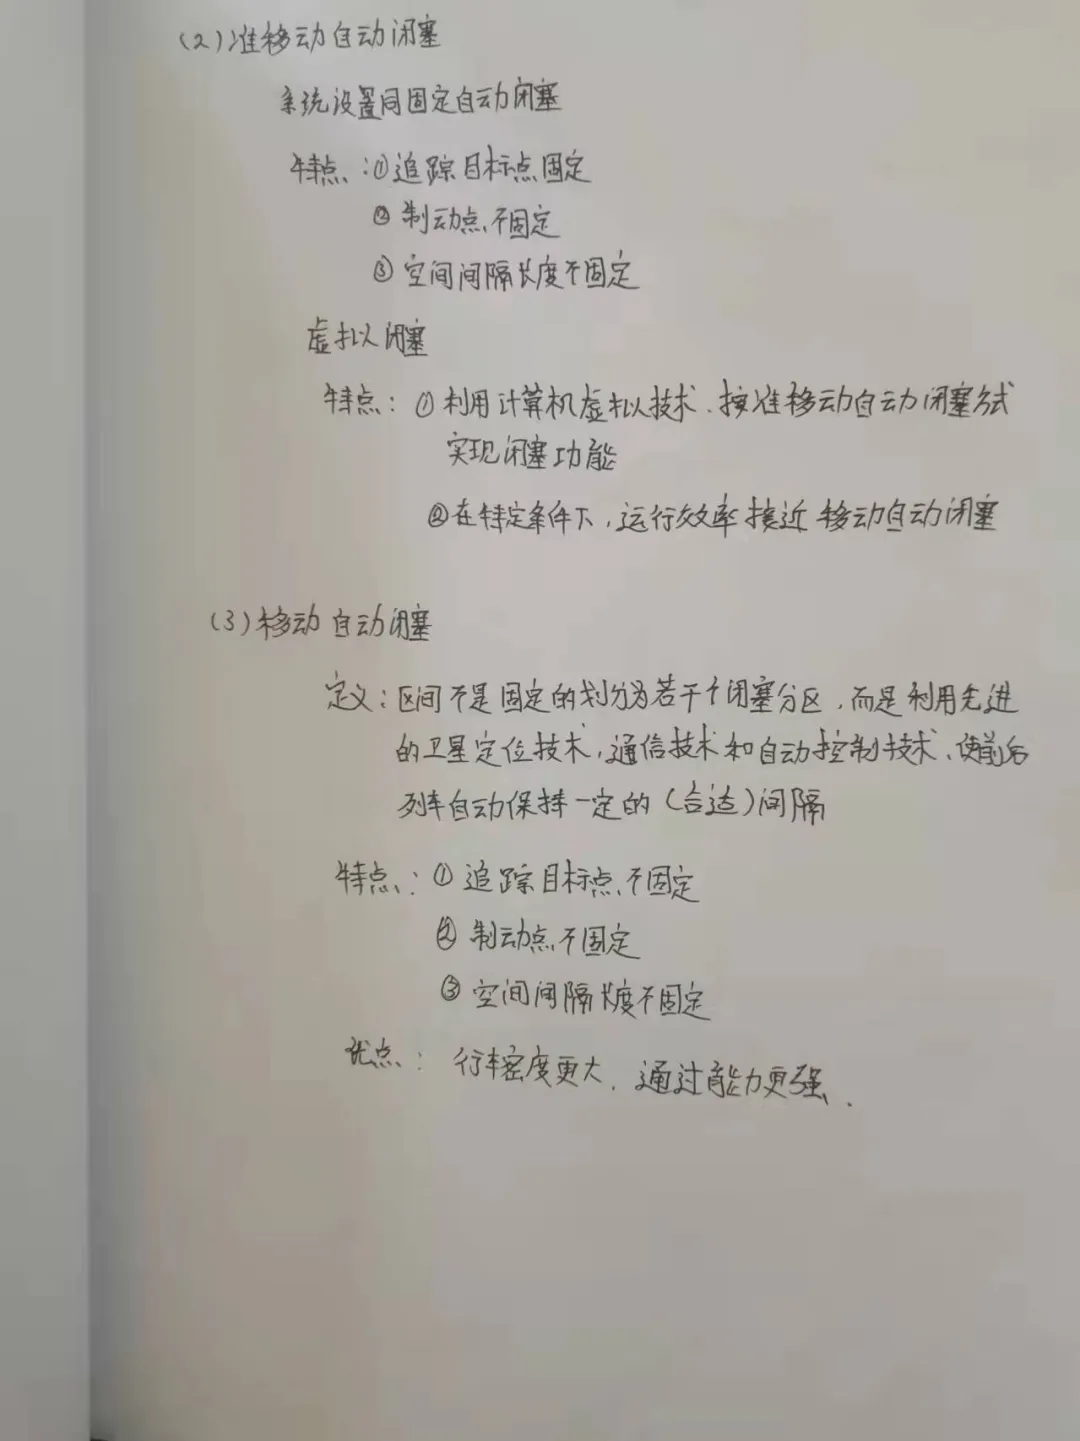 (2)准移动自动闭塞
系统设置同固定自动闭塞
特点:①追踪目标点固定
②制动点不固定
③空间间隔长度不固定
虚拟闭塞
特点:①利用计算机虚拟技术、按准移动自动闭塞方式
实现闭塞功能
②在特定条件下,运行效率接近移动自动闭塞
(3)移动自动闭塞
定义:区间不是固定的划分为若干个闭塞分区,而是利用先进
的卫星定位技术,通信技术和自动控制技术、使前后
列车自动保持一定的(合适)间隔
特点:①追踪目标点不固定
②制动点不固定
③空间间隔长度不固定
优点:行车密度更大,通过能力更强.